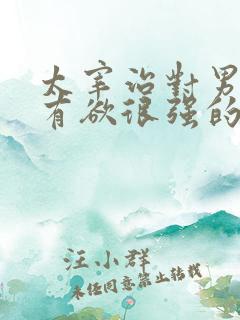 太宰治對男
有欲很强的
汪小群
未经同意禁止转载